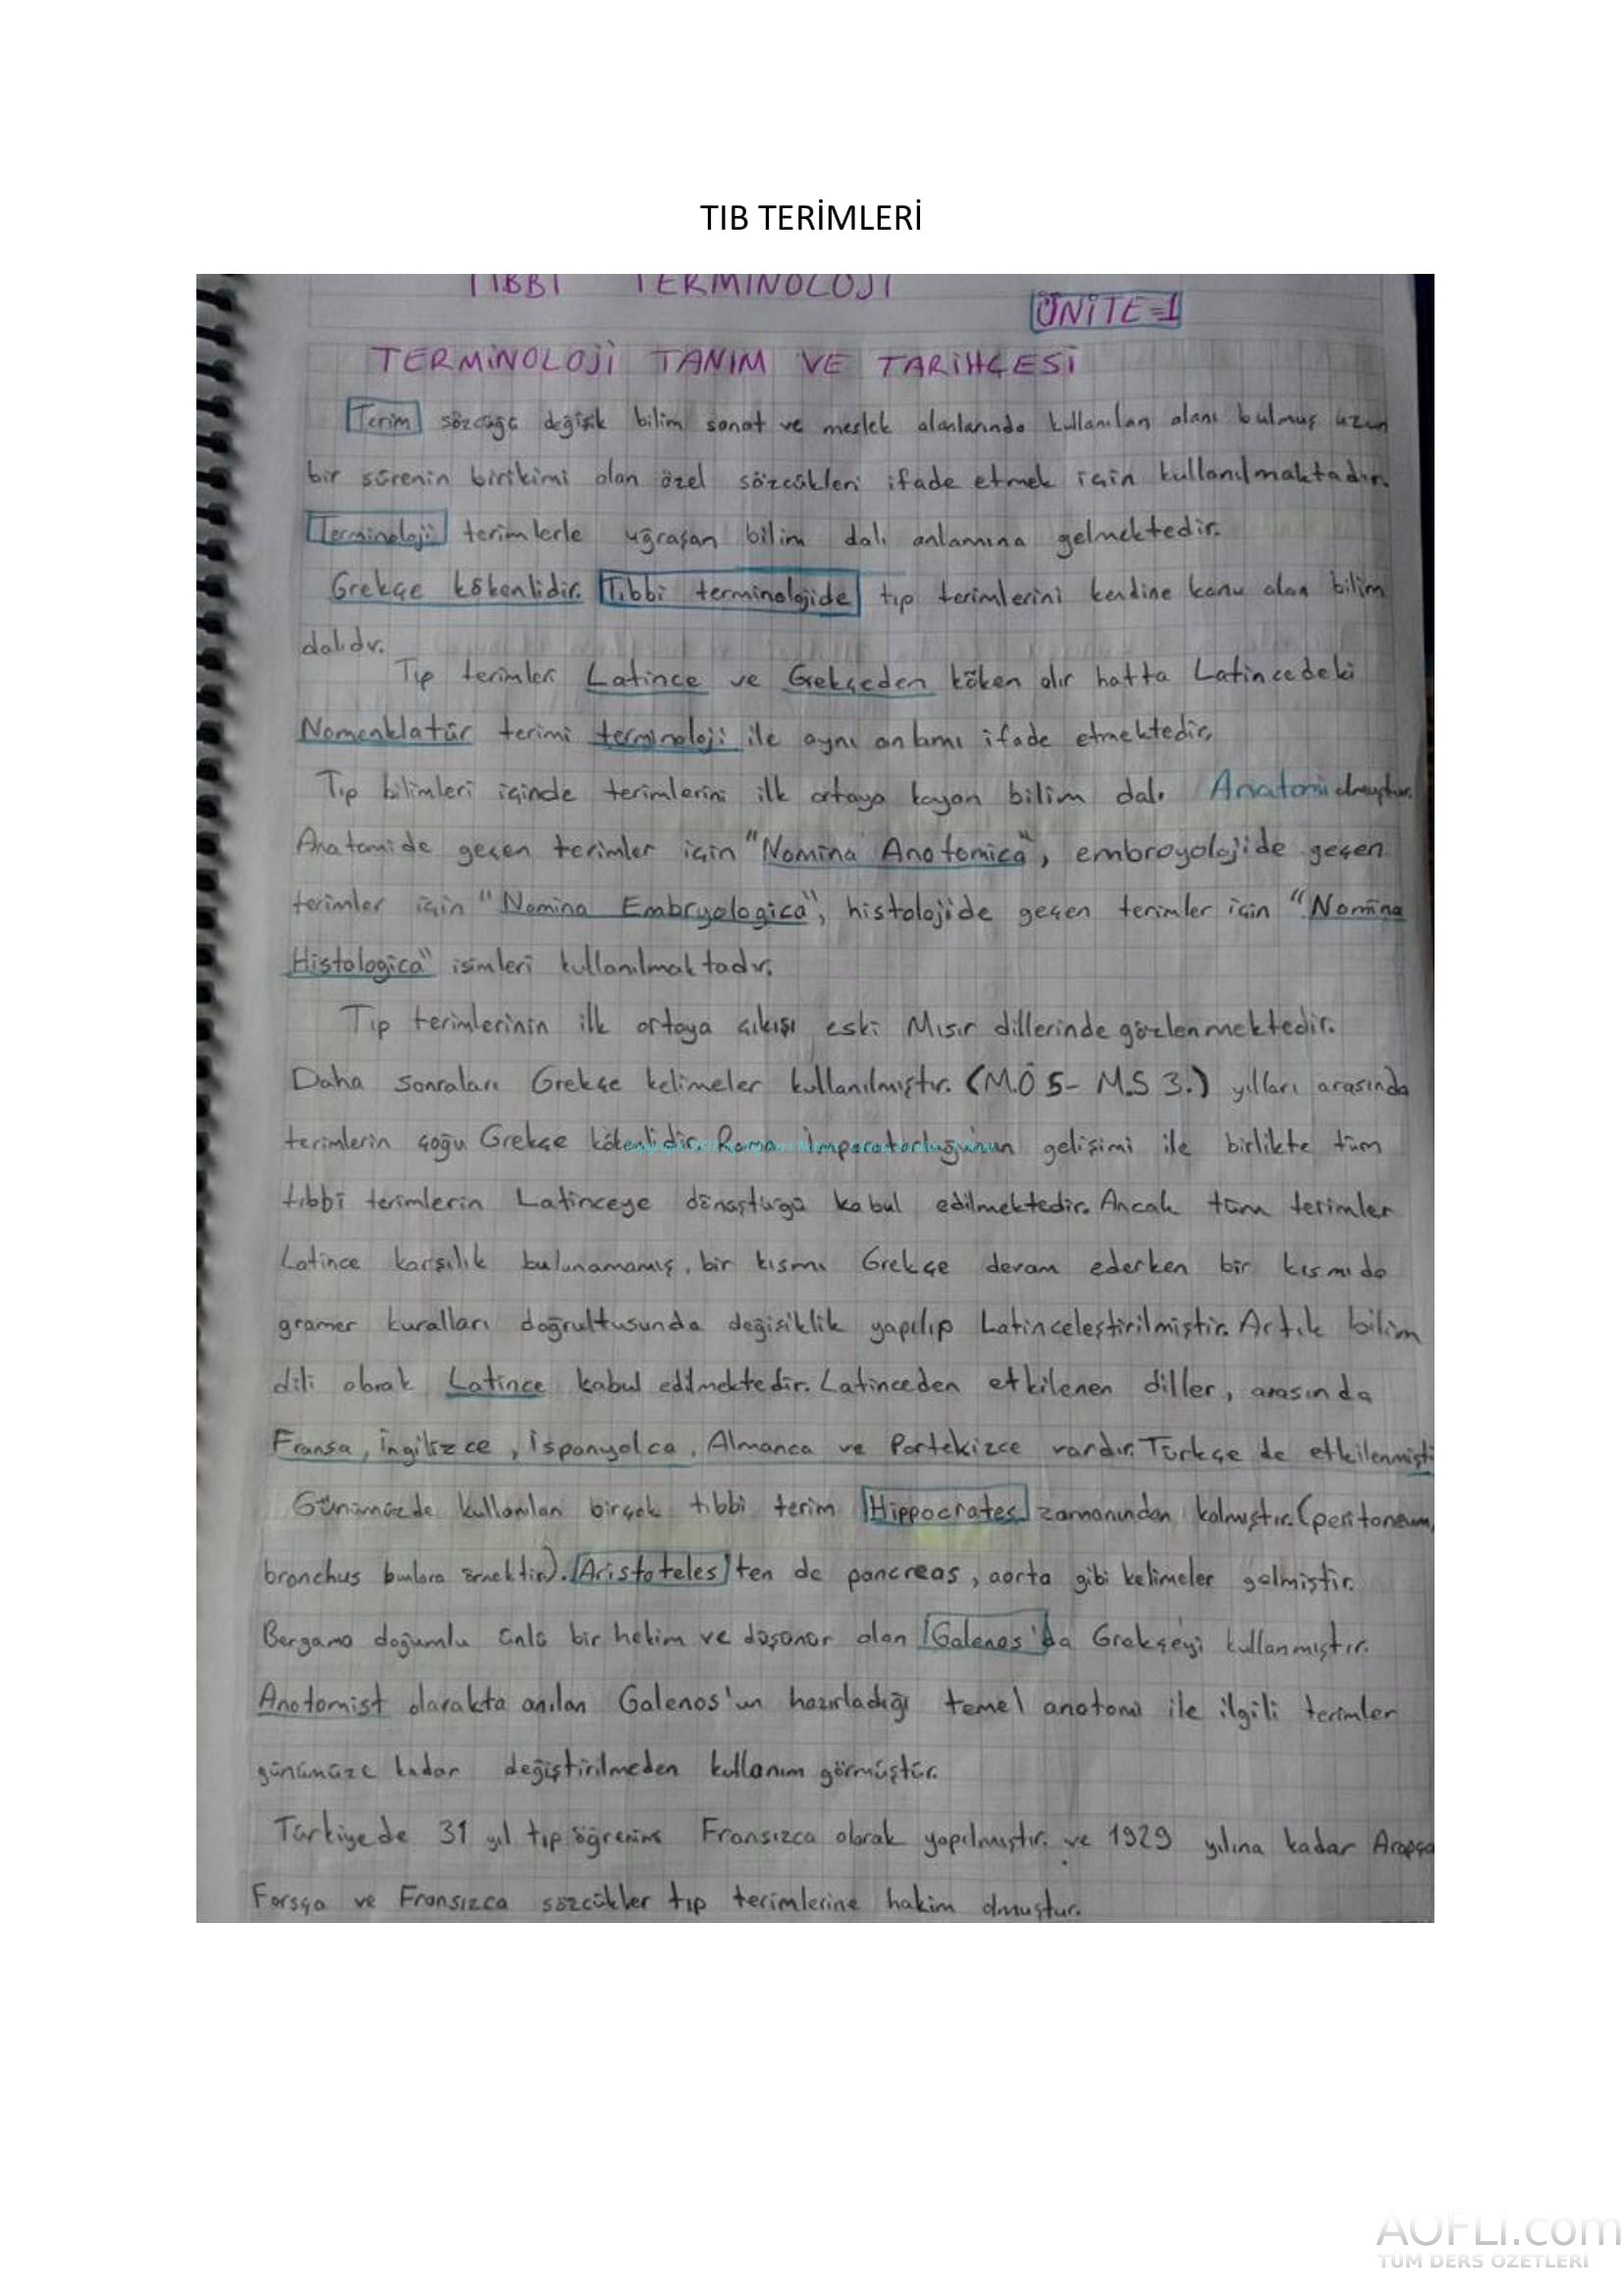 TIB TERİMLERİ
TIBBİ TERMİNOLOJİ
ÜNİTE=1
TERMİNOLOJİ TANIM VE TARİHÇESİ
Terim sözcüğü değişik bilim sanat ve meslek alanlarında kullanılan alanı bulmuş uzun
bir sürenin birikimi olan özel sözcükleri ifade etmek için kullanılmaktadır.
Terminoloji terimlerle uğraşan bilim dalı anlamına gelmektedir.
Grekçe kökenlidir. Tıbbi terminolojide tıp terimlerini kendine konu olan bilim
dalıdır.
Tıp terimleri Latince ve Grekçeden köken alır hatta Latincedeki
Nomenklatür terimi terminoloji ile aynı anlamı ifade etmektedir.
Tıp bilimleri içinde terimlerini ilk ortaya koyan bilim dalı Anatomi olmuştur.
Anatomide geçen terimler için "Nomina Anotomica", embroyolojide geçen
terimler için "Nomina Embryologica", histolojide geçen terimler için "Nomina
Histologica" isimleri kullanılmaktadır.
Tıp terimlerinin ilk ortaya çıkışı eski Mısır dillerinde gözlenmektedir.
Daha sonraları Grekçe kelimeler kullanılmıştır. (M.Ö 5- M.S 3.) yılları arasında
terimlerin çoğu Grekçe kökenlidir. Roma İmparatorluğunun gelişimi ile birlikte tüm
tıbbi terimlerin Latinceye dönüştüğü kabul edilmektedir. Ancak tüm terimler
Latince karşılık bulunamamış, bir kısmı Grekçe devam ederken bir kısmıda
gramer kuralları doğrultusunda değişiklik yapılıp Latinceleştirilmiştir. Artık bilim
dili olarak Latince kabul edilmektedir. Latinceden etkilenen diller, arasında
Fransa, İngilizce, İspanyolca, Almanca ve Portekizce vardır. Türkçe de etkilenmişti
Günümüzde kullanılan birçok tıbbi terim Hippocrates zamanından kalmıştır. (peritoneum,
bronchus bunlara örnektir). Aristoteles'ten de pancreas, aorta gibi kelimeler gelmiştir.
Bergama doğumlu ünlü bir hekim ve düşünür olan Galenos'da Grekçeyi kullanmıştır.
Anotomist olarakta anılan Galenos'un hazırladığı temel anatomi ile ilgili terimler
günümüze kadar değiştirilmeden kullanım görmüştür.
Türkiyede 31 yıl tıp öğrenimi Fransızca olarak yapılmıştır. ve 1929 yılına kadar Arapça
Farsça ve Fransızca sözcükler tıp terimlerine hakim olmuştur.
AOFLİ.com
TÜM DERS ÖZETLERİ